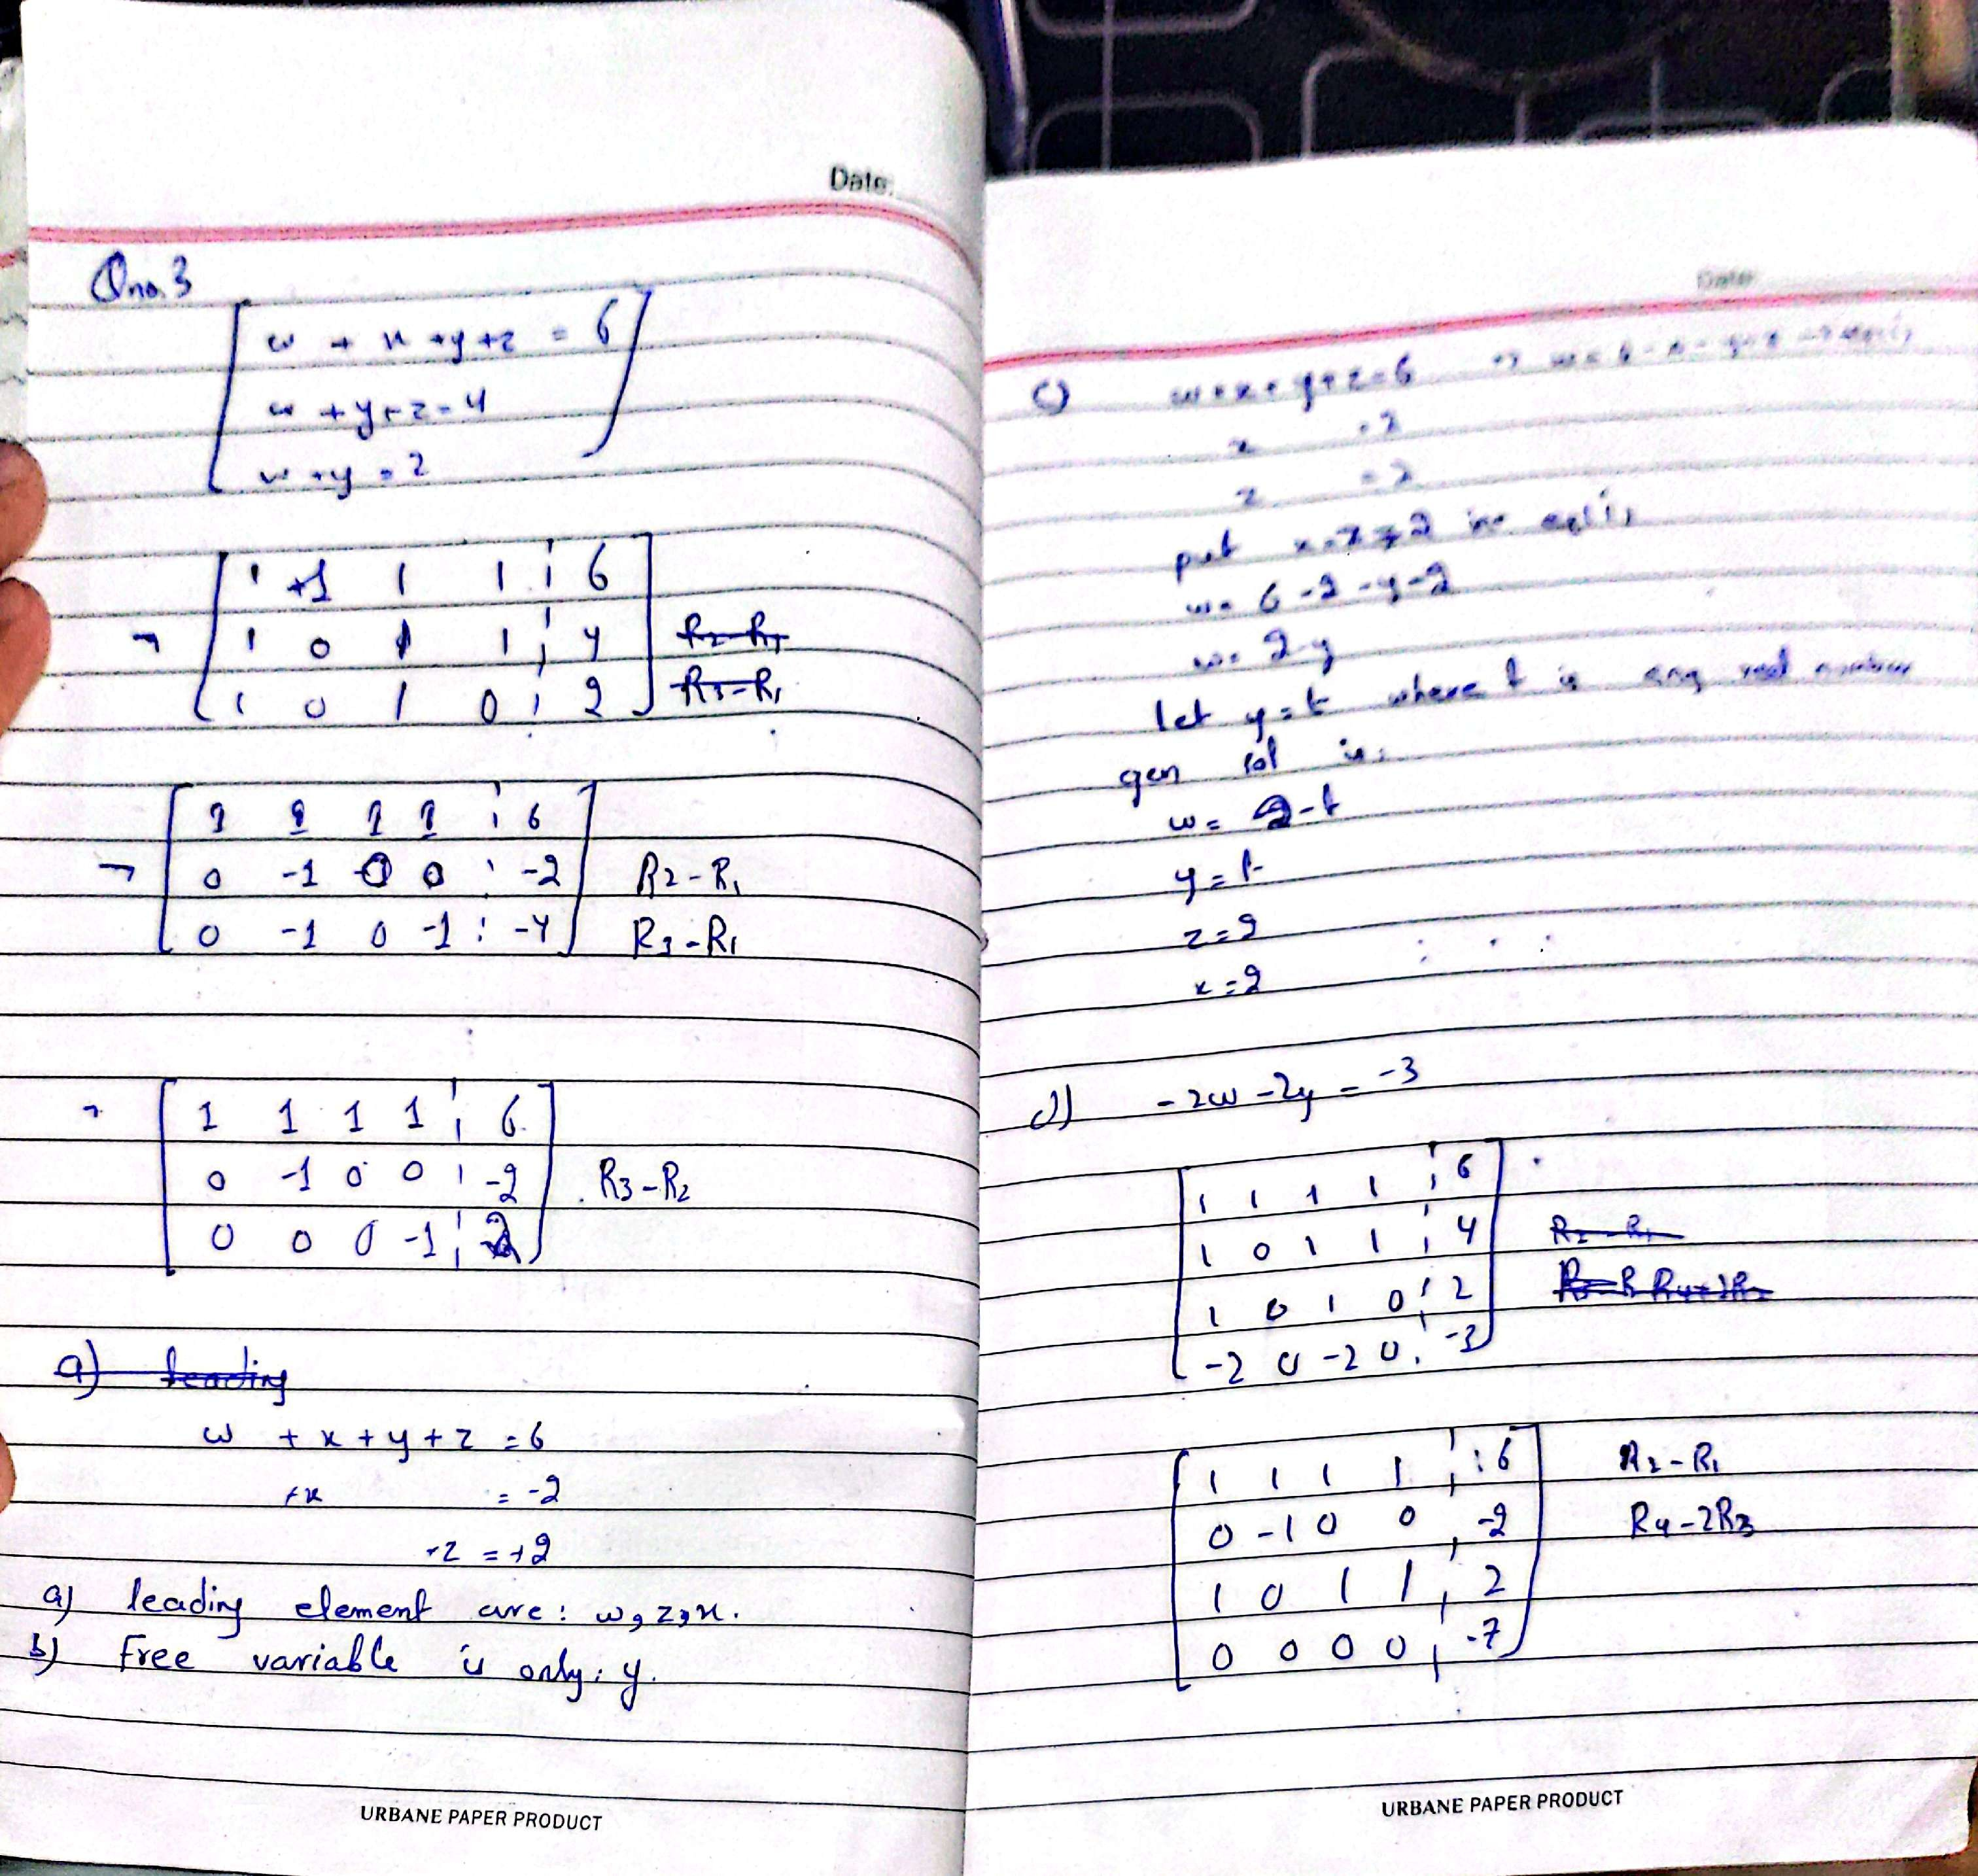 Date:
Qno. 3
w + x + y + z = 6
w + y + z = 4
w + y = 2
~ 1 +1 1 1 ¦ 6
1 0 1 1 ¦ 4 R2-R1
1 0 1 0 ¦ 2 R3-R1
~ 1 1 1 1 ¦ 6
0 -1 0 0 ¦ -2 R2-R1
0 -1 0 -1 ¦ -4 R3-R1
~ 1 1 1 1 ¦ 6
0 -1 0 0 ¦ -2 R3-R2
0 0 0 -1 ¦ 2
a) leading
w + x + y + z = 6
+x = -2
+z = +2
a) leading element are: w, z, x.
b) Free variable is only: y.
URBANE PAPER PRODUCT
Date:
c) w + x + y + z = 6 => w = 6 - x - y - z → eq(i)
x = 2
z = 2
put x = z = 2 in eq(i)
w = 6 - 2 - y - 2
w = 2 - y
let y = t where t is any real number
gen sol is:
w = 2 - t
y = t
z = 2
x = 2
d) -2w - 2y = -3
1 1 1 1 ¦ 6
1 0 1 1 ¦ 4 R2-R1
1 0 1 0 ¦ 2
-2 0 -2 0 ¦ -3
1 1 1 1 ¦ : 6 R2-R1
0 -1 0 0 ¦ -2 R4-2R3
1 0 1 1 ¦ 2
0 0 0 0 ¦ -7
URBANE PAPER PRODUCT